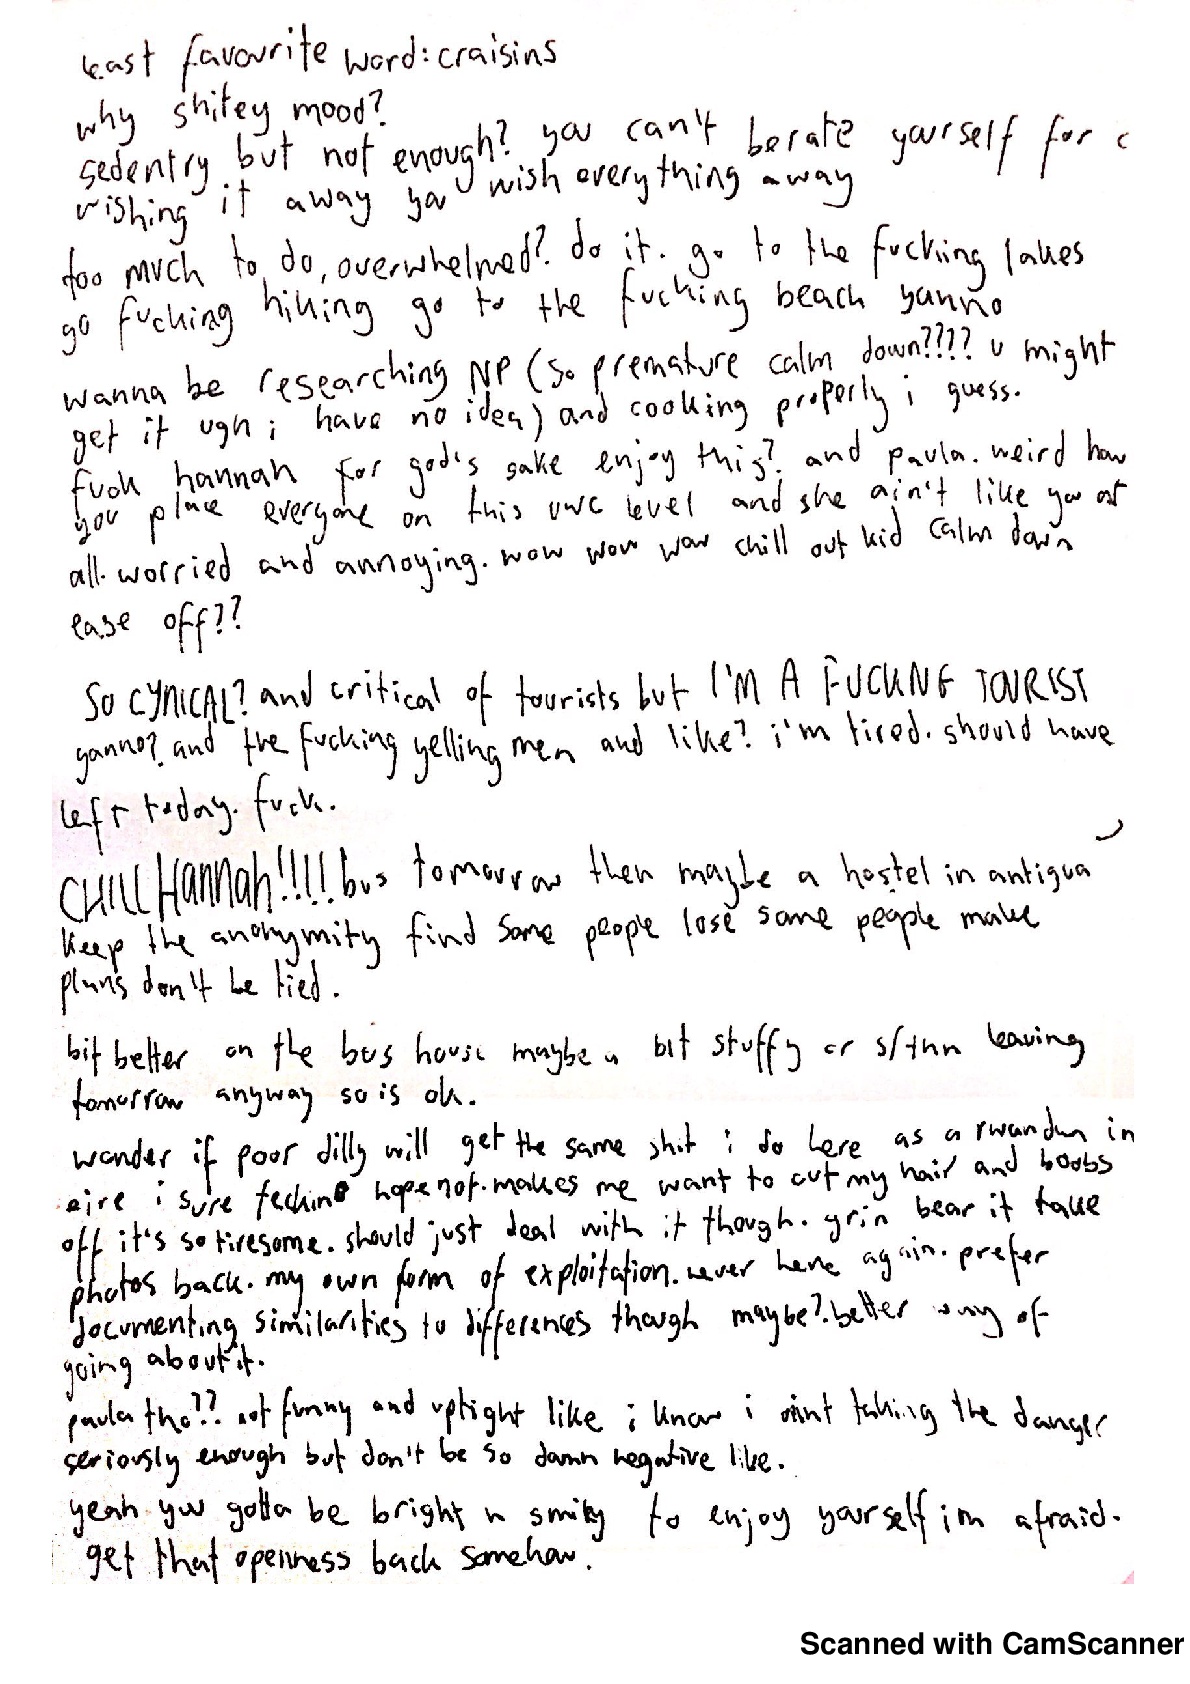 least favourite word: craisins
why shitey mood?
sedentry but not enough? you can't berate yourself for
wishing it away you wish everything away
too much to do, overwhelmed? do it. go to the fucking lakes
go fucking hiking go to the fucking beach yanno
wanna be researching NP (so premature calm down???? u might
get it ugh i have no idea) and cooking properly i guess.
fuck hannah for god's sake enjoy this? and paula. weird how
you place everyone on this uwc level and she ain't like you at
all. worried and annoying. wow wow wow chill out kid calm down
ease off??
SO CYNICAL? and critical of tourists but I'M A FUCKING TOURIST
yanno? and the fucking yelling men and like? i'm tired. should have
left today. fuck.
CHILL HANNAH!!!! bus tomorrow then maybe a hostel in antigua
keep the anonymity find some people lose some people make
plans don't be tied.
bit better on the bus house maybe a bit stuffy or s/thn leaving
tomorrow anyway so is ok.
wonder if poor dilly will get the same shit i do here as a rwandan in
eire i sure fecking hope not. makes me want to cut my hair and boobs
off it's so tiresome. should just deal with it though. grin bear it take
photos back. my own form of exploitation. never here again. prefer
documenting similarities to differences though maybe? better way of
going about it.
paula tho?? not funny and uptight like i know i aint taking the danger
seriously enough but don't be so damn negative like.
yeah you gotta be bright n smiley to enjoy yourself im afraid.
get that openness back somehow.
Scanned with CamScanner